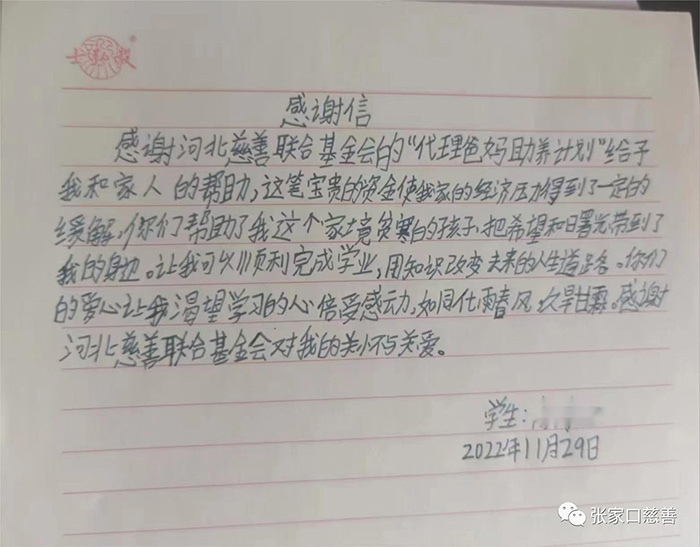 感谢信
感谢河北慈善联合基金会的“代理爸妈助养计划”给予
我和家人的帮助，这笔宝贵的资金使我家的经济压力得到了一定的
缓解，你们帮助了我这个家境贫寒的孩子，把希望和曙光带到了
我的身边。让我可以顺利完成学业，用知识改变未来的人生道路。你们
的爱心让我渴望学习的心倍受感动，如同化雨春风，久旱甘霖。感谢
河北慈善联合基金会对我的关怀与关爱。
学生：
2022年11月29日
张家口慈善